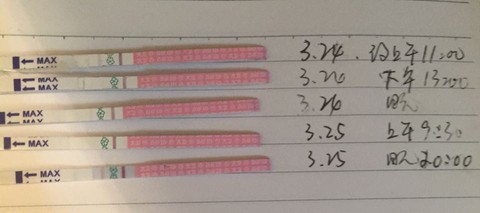 MAX 3.24 上午11:00
MAX 3.24 下午13:00
MAX 3.24
MAX 3.25 上午9:30
MAX 3.25 20:00